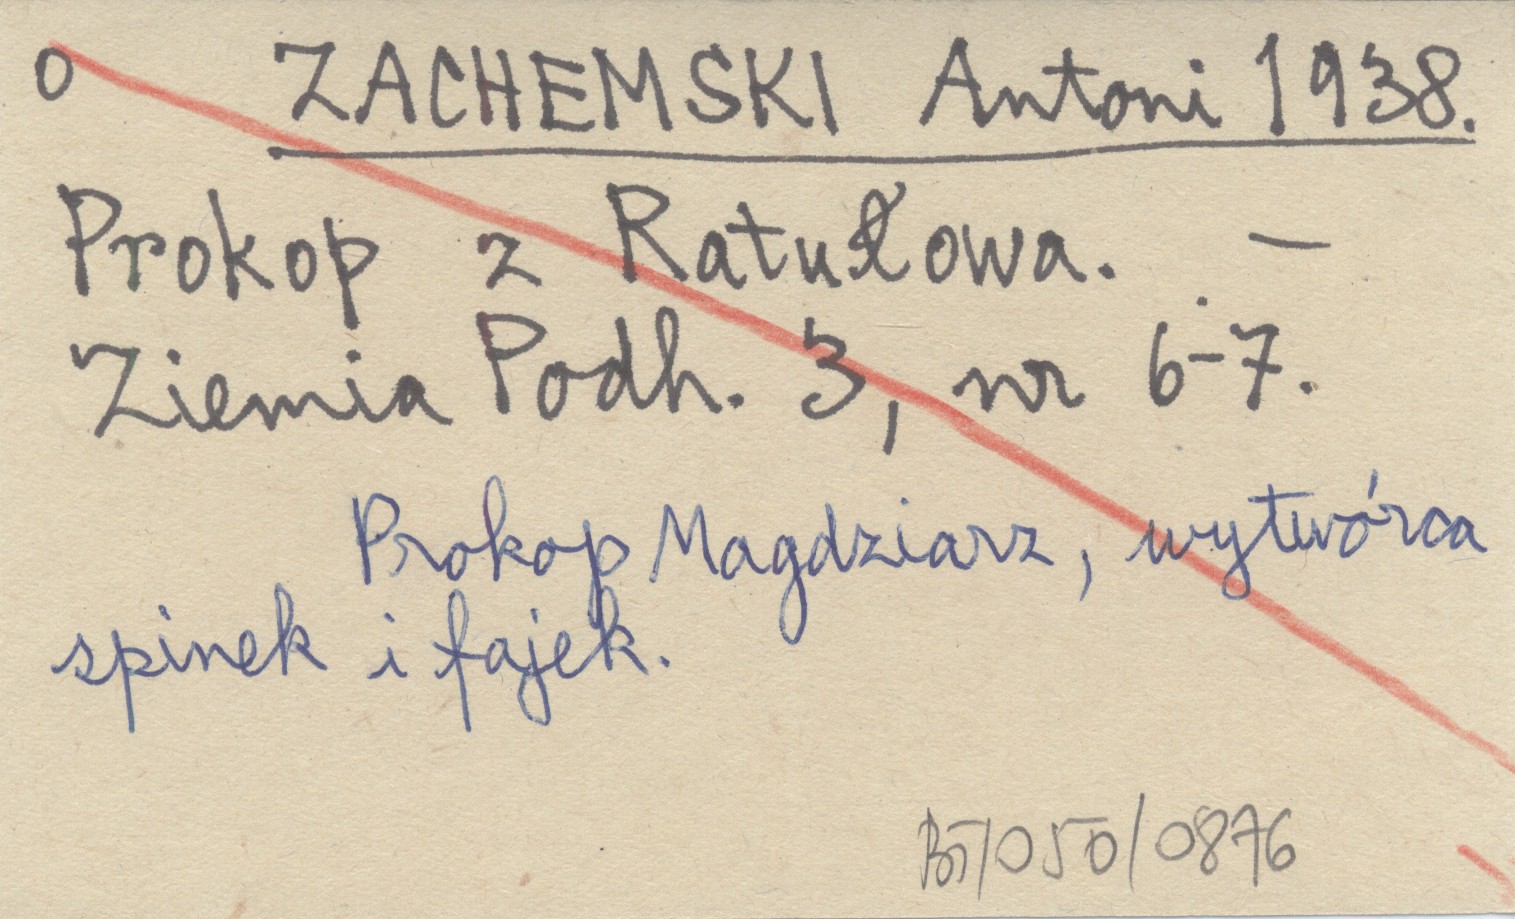 o ZACHEMSKI Antoni 1938.
Prokop z Ratułowa. —
Ziemia Podh. 3, nr 6-7.
Prokop Magdziarz, wytwórca
spinek i fajek.
BT/050/0876